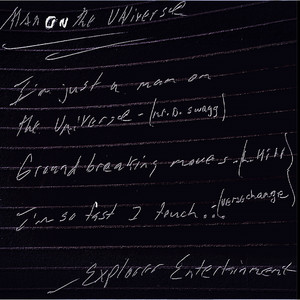 MAN ON the UNiverse
I'm just a man on
the Universe - (Mr. D. swagg)
Ground breaking moves - (
I'm so fast I touch... (verse change
Explorer Entertainment